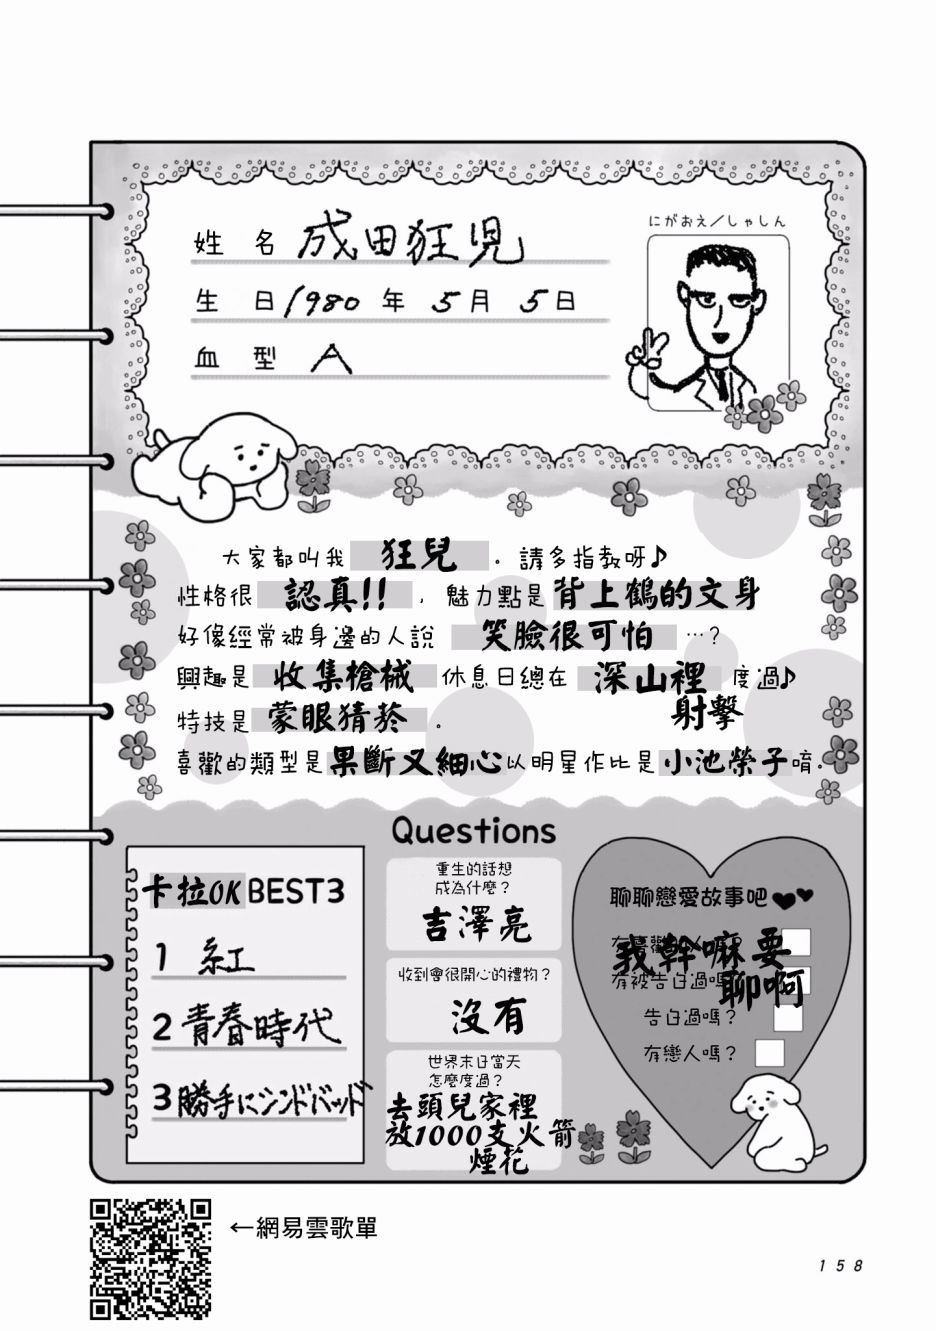 にがおえ/しゃしん
姓 名 成田狂児
生 日 1980 年 5月 5日
血 型 A
大家都叫我 狂兒 。請多指教呀♪
性格很 認真!! ，魅力點是 背上鶴的文身
好像經常被身邊的人說 笑臉很可怕 …?
興趣是 收集槍械 休息日總在 深山裡 度過♪
射擊
特技是 蒙眼猜菸 。
喜歡的類型是 果斷又細心 以明星作比是 小池榮子 唷。
Questions
卡拉OK BEST3
1 紅
2 青春時代
3 勝手にシンドバッド
重生的話想
成為什麼？
吉澤亮
收到會很開心的禮物？
沒有
世界末日當天
怎麼度過？
去頭兒家裡
放1000支火箭
煙花
聊聊戀愛故事吧
我幹嘛要
聊啊
有被告白過嗎
告白過嗎？
有戀人嗎？
←網易雲歌單
158